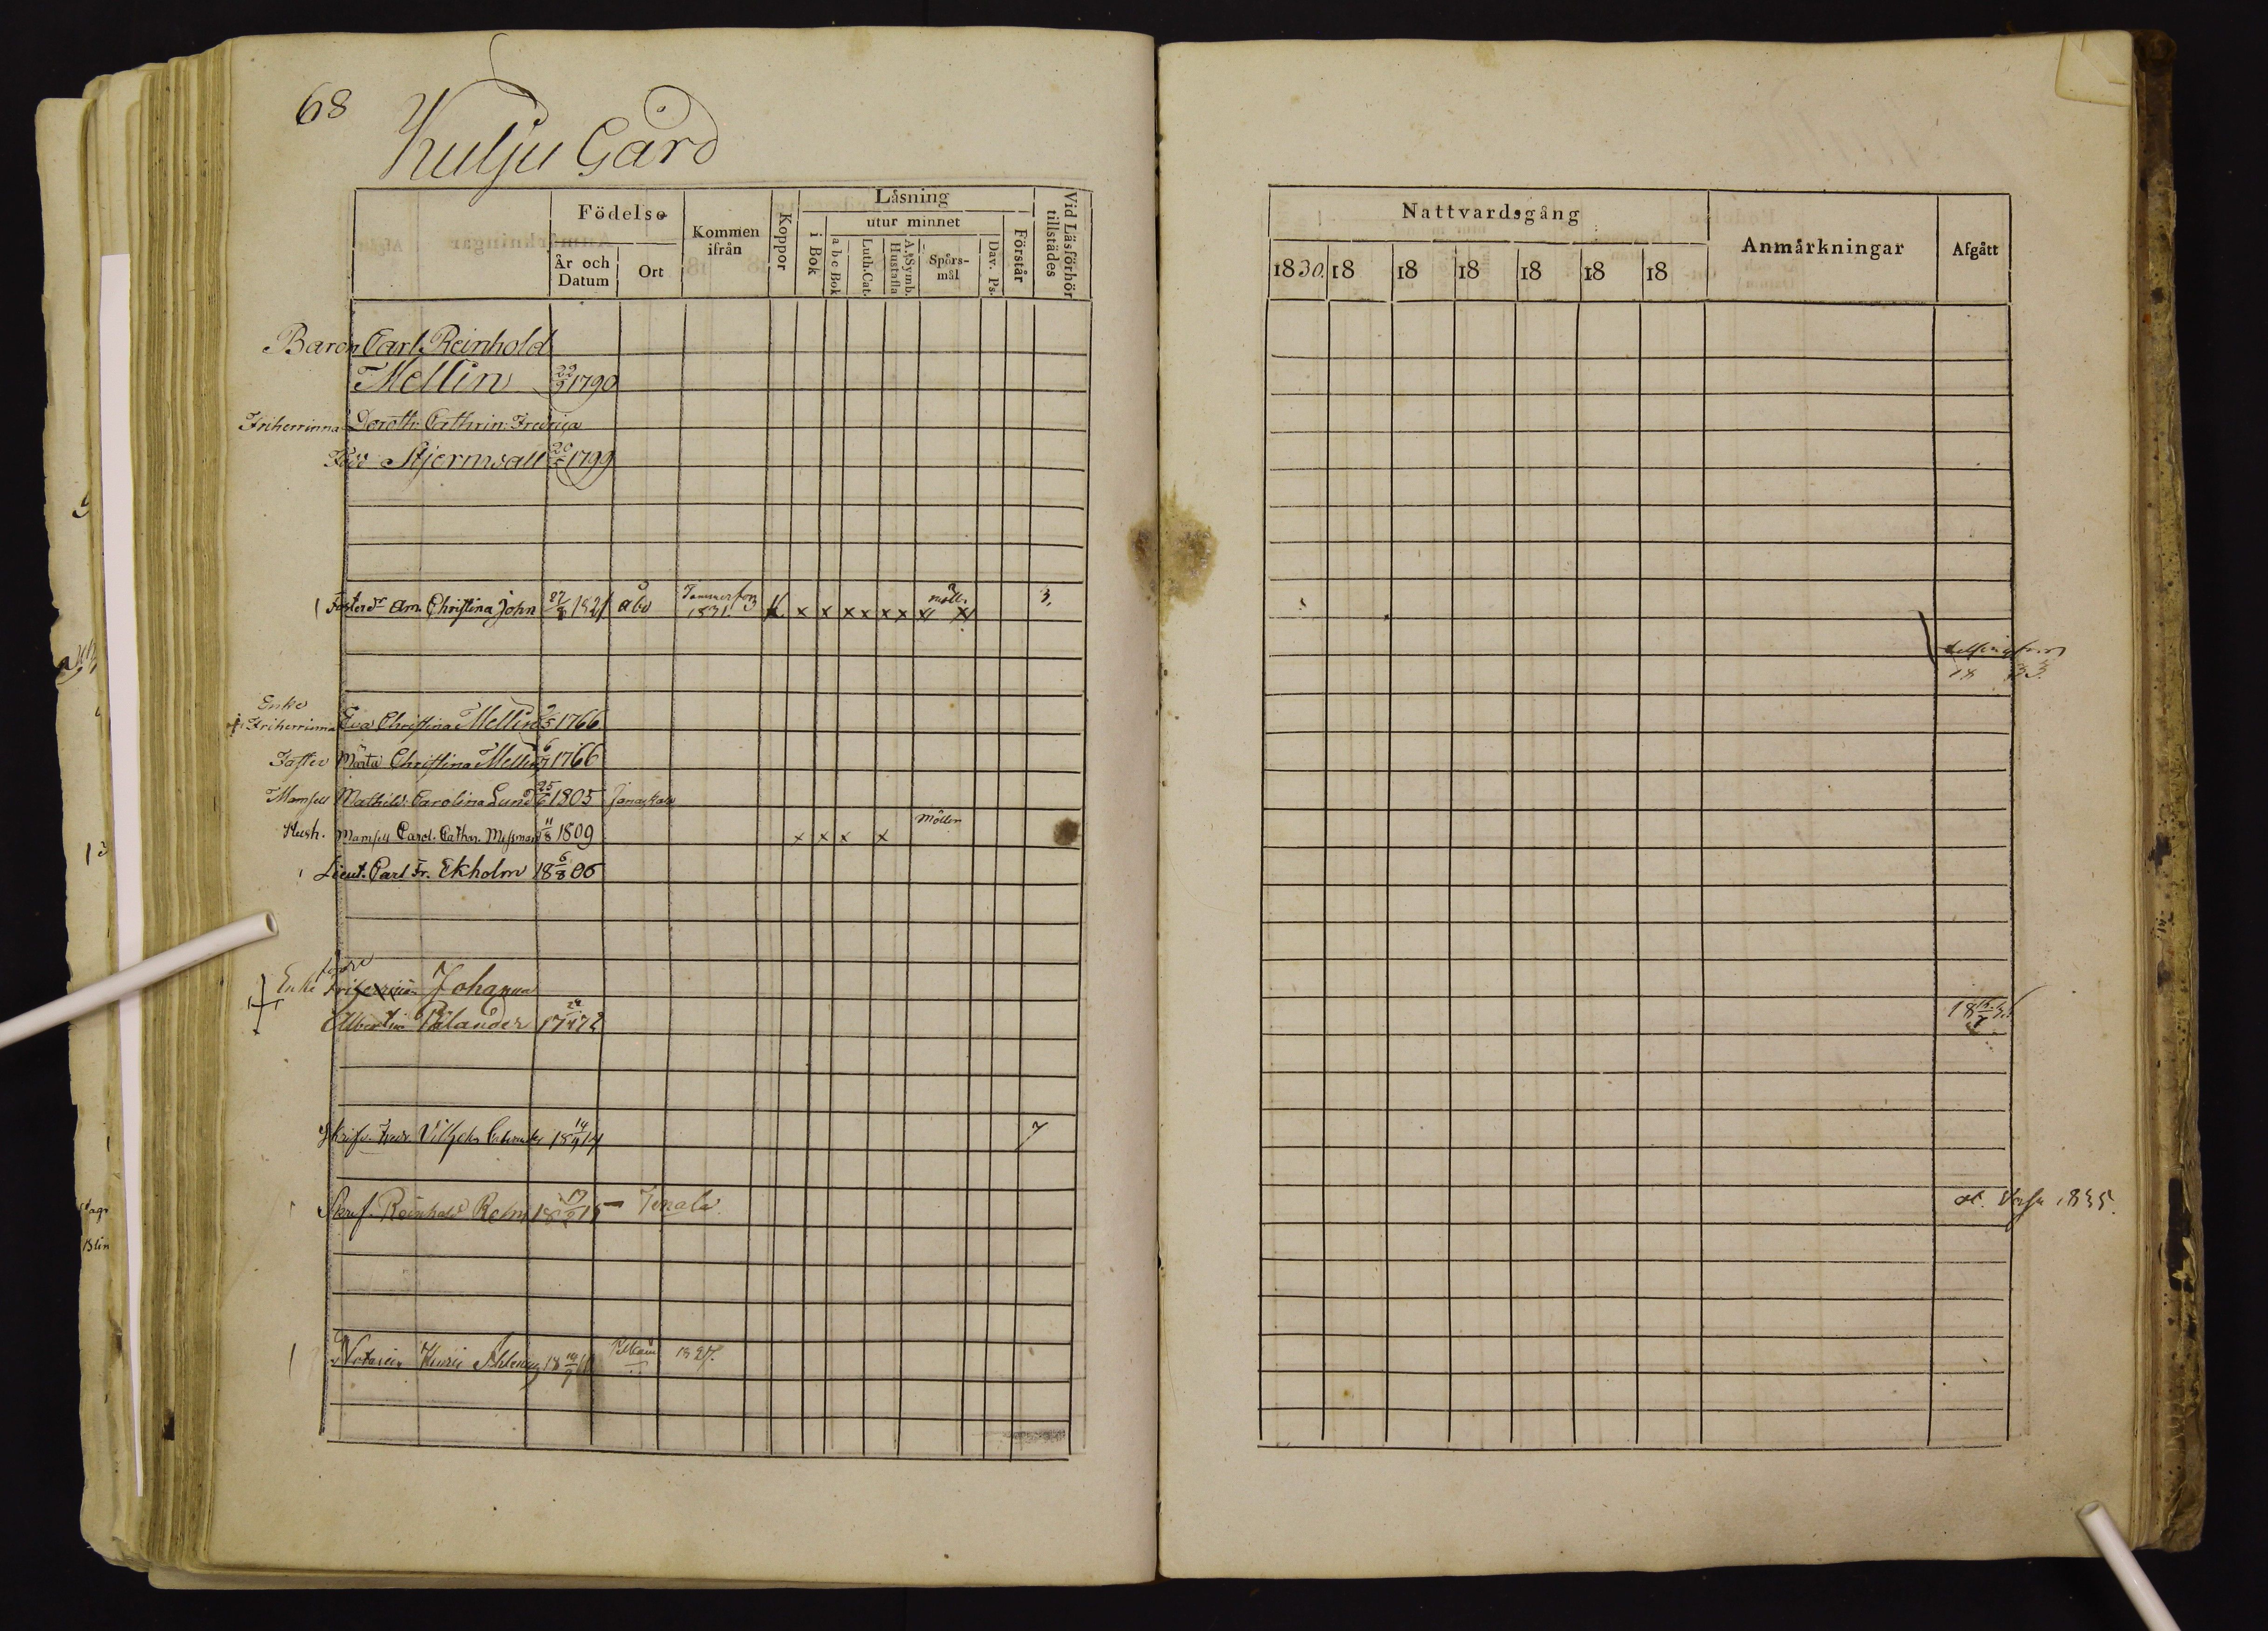 68
Kulju Gård
Födelse
År och Datum
Ort
Kommen ifrån
Koppor
Läsning
i Bok
utur minnet
a b c Bok
Luth. Cat.
A. Symb. Hustafla
Spörs-mål
Dav. Ps.
Förstår
Vid Läsförhör tillstädes
Baron Carl Reinhold
Mellin 22/9 1790
Friherrinna Doroth: Cathrin: Fredrica
Född Stjernwall 1799
Foster dr Am. Christina John 27/8 1821 Åbo Tammerfors 1831 x x x x x x x x möll. 3.
Enke
Friherrinna Eva Christina Mellin 1766
Faster Märta Christina Mellin 6/7 1766
Mamsell Mathild: Carolina Lund 25/6 1805 Janakala
Hush. Mamsell Carol. Cathar. Missman 11/8 1809 x x x x möllen
Lieut. Carl Fr. Ekholm 18 6/8 06
Enke Friherrinna Johanna
Albertina Pålander 17 72
Skrif. Fredr. 18 14/9 14 7
Skrif. Reinhold Relm 18 17/2 15 Tenala
Notarien Henric 18 1827.
Nattvardsgång
1830. 18 18 18 18 18 18
Anmärkningar
Afgått
Helsingfors
18 33
18
1835.